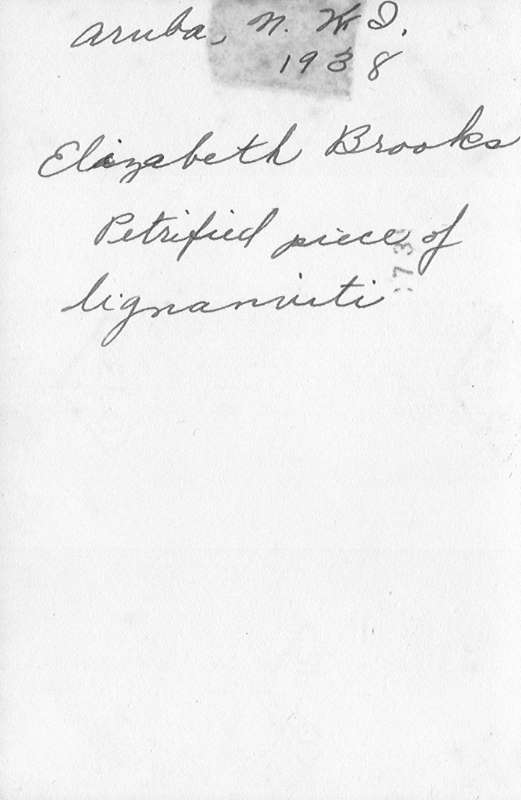 Aruba, N. W. I.
1938
Elizabeth Brooks
Petrified piece of
lignanviti